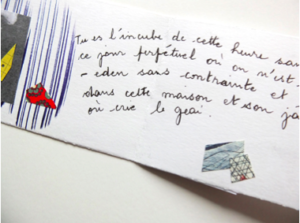 Tu es l'incube de cette heure san
ce jour perpétuel où on n'est
- eden sans contrainte et
dans cette maison et son ja
où crie le geai.